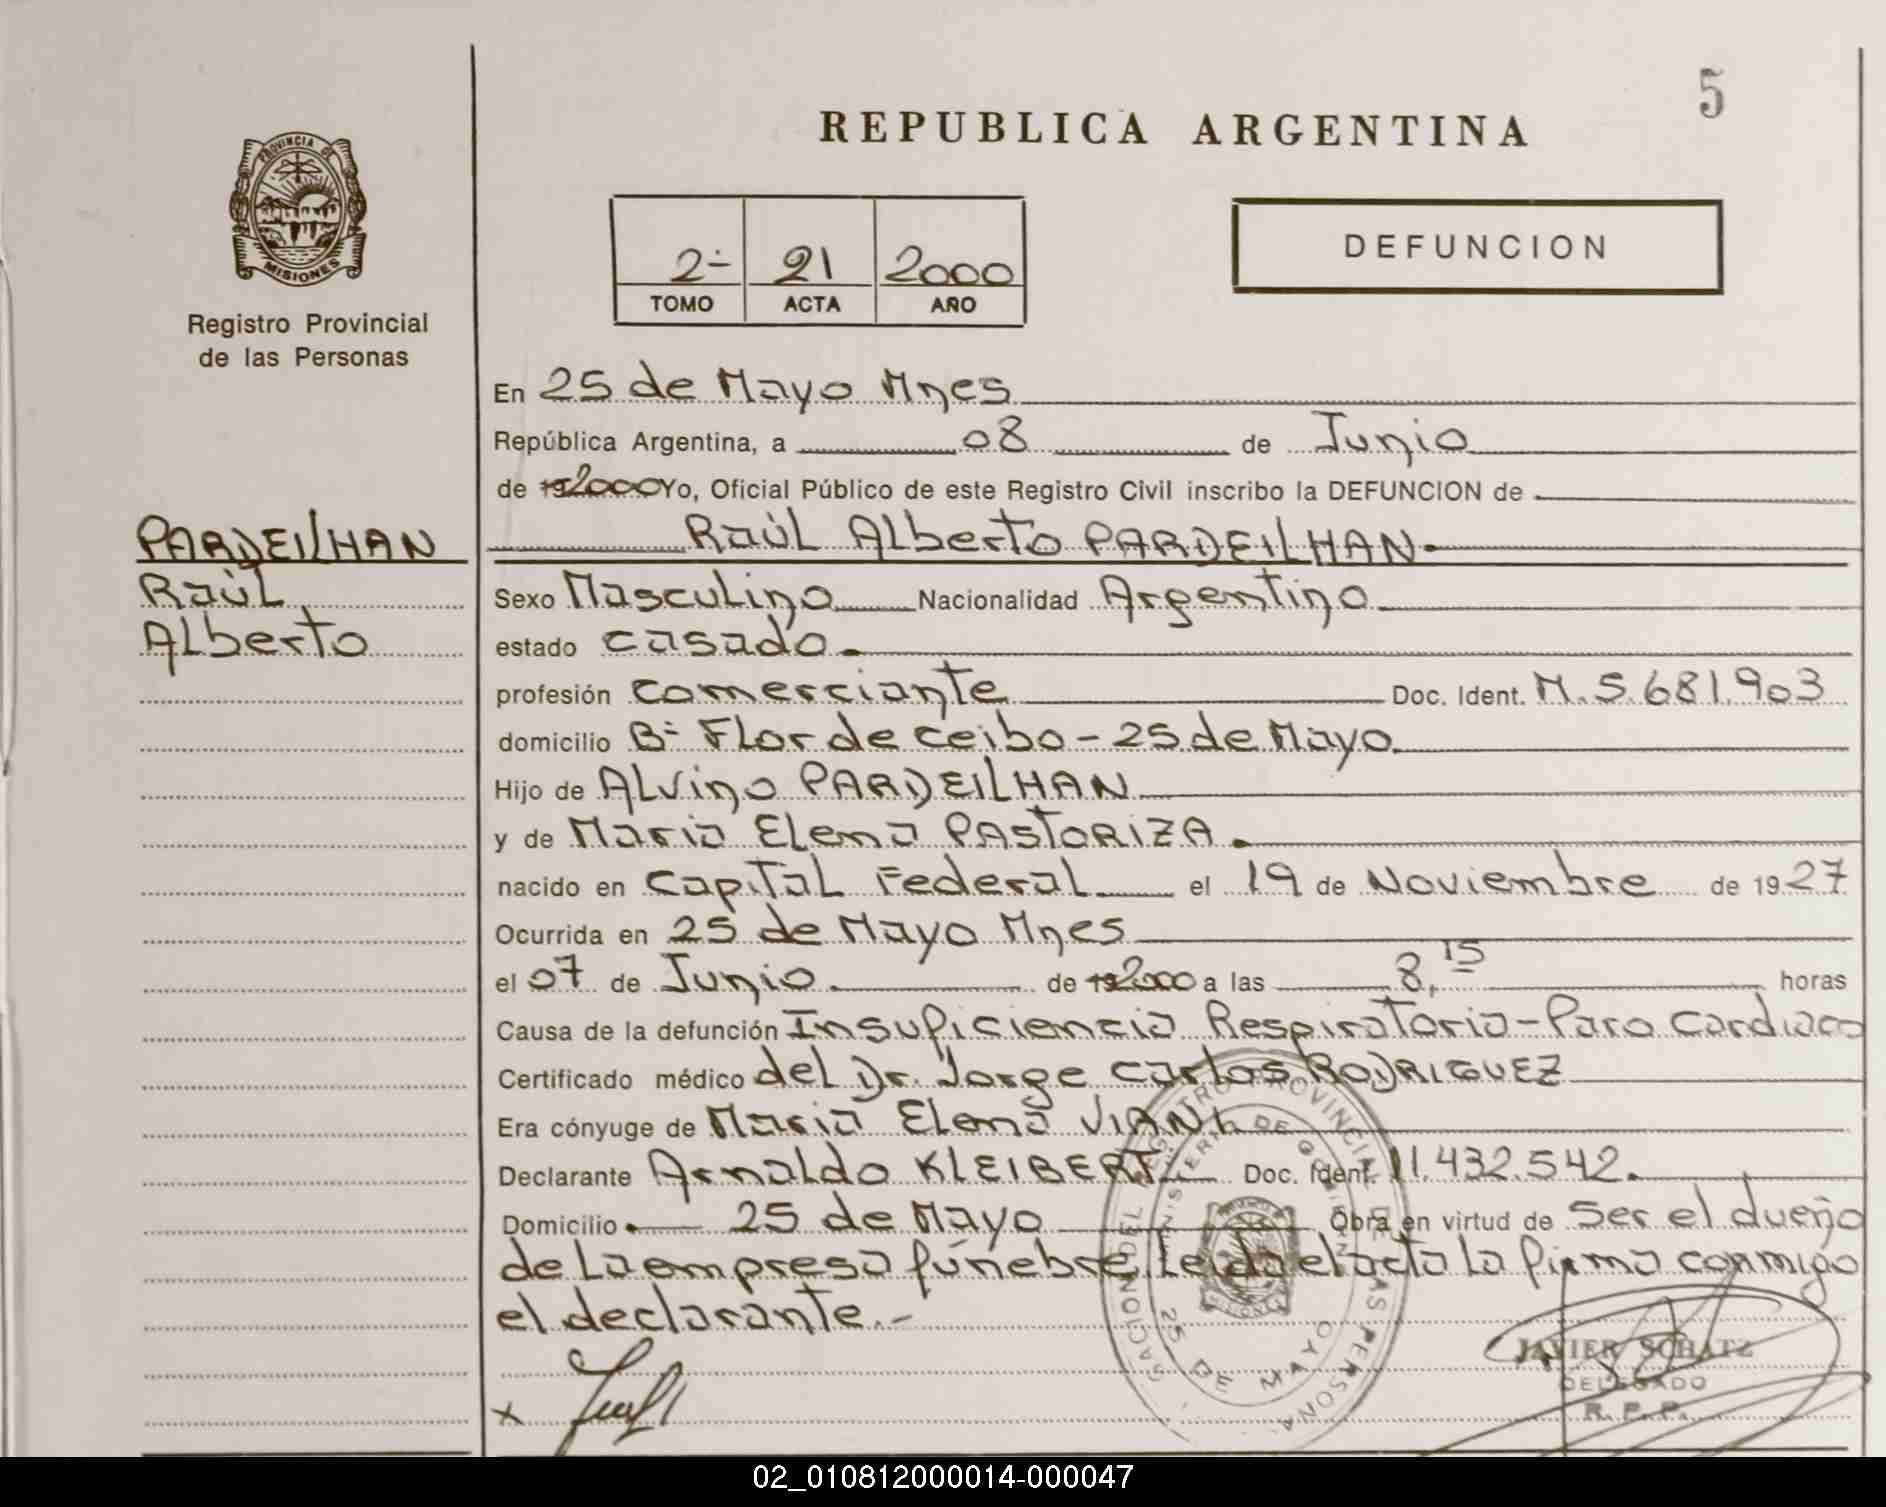 5
REPUBLICA ARGENTINA
PROVINCIA DE
MISIONES
Registro Provincial
de las Personas
2- 21 2000
TOMO ACTA AÑO
DEFUNCION
En 25 de Mayo Mnes
República Argentina, a 08 de Junio
de 192000 Yo, Oficial Público de este Registro Civil inscribo la DEFUNCION de
PARDEILHAN
Raúl
Alberto
Raúl Alberto PARDEILHAN
Sexo Masculino Nacionalidad Argentino
estado casado.
profesión comerciante Doc. Ident. M. 5.681.903
domicilio B- Flor de Ceibo - 25 de Mayo
Hijo de Alvino PARDEILHAN
y de Maria Elena PASTORIZA.
nacido en Capital Federal el 19 de Noviembre de 1927
Ocurrida en 25 de Mayo Mnes
el 07 de Junio. de 192000 a las 8,15 horas
Causa de la defunción Insuficiencia Respiratoria - Paro Cardiaco
Certificado médico del Dr. Jorge Carlos RODRIGUEZ
Era cónyuge de Maria Elena VIANI.
Declarante Arnaldo KLEIBERT Doc. Ident. 11.432.542.
Domicilio 25 de Mayo Obra en virtud de Ser el dueño
de La empresa fúnebre. Leída el acta La firma conmigo
el declarante.-
x
JAVIER SCHATZ
DELEGADO
R. P. P.
REGISTRO PROVINCIAL DE LAS PERSONAS
MINISTERIO DE GOBIERNO
25 DE MAYO
02_010812000014-000047